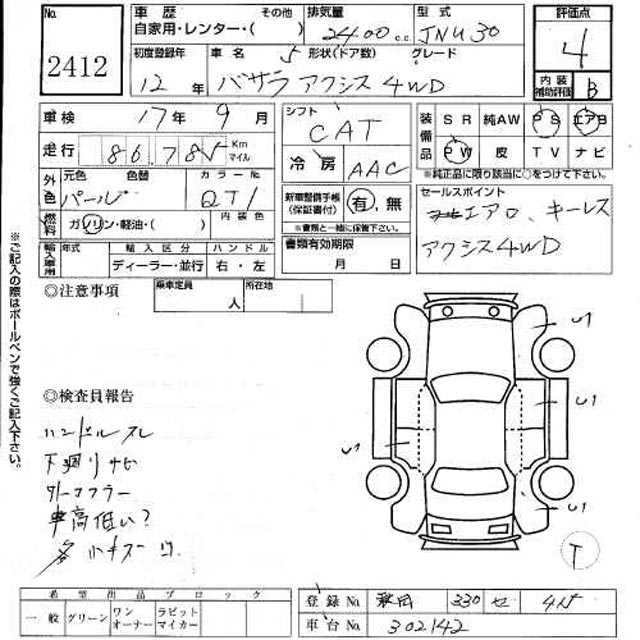 No.
2412
車歴 その他
自家用・レンター・( )
排気量
2400 c.c.
型式
JNU30
初度登録年
12年
車名 形状(ドア数) グレード
5
バサラ アクシス 4WD
評価点
4
内装補助評価 B
車検 17年 9月
走行 86,785 Km マイル
外色 元色 色替 カラーNo.
パール QT1
燃料 ガソリン・軽油・( ) 内装色
輸入車用 年式 輸入区分 ハンドル
ディーラー・並行 右・左
シフト
CAT
冷房 AAC
新車整備手帳(保証書付) 有・無
※書類と一緒に保管下さい。
書類有効期限
月 日
装備品 SR 純AW PS エアB
PW 皮 TV ナビ
※純正品に限り該当に○をつけて下さい。
セールスポイント
エアロ、キーレス
アクシス4WD
◎注意事項
乗車定員 人 所在地
※ご記入の際はボールペンで強くご記入下さい。
◎検査員報告
ハンドルスレ
下廻りサビ
外マフラー
車高低い?
各小キズ
U1
U1
U1
U1
T
希望出品ブロック
一般 グリーン ワンオーナー ラビットマイカー
登録No. 秋田 330 セ 45
車台No. 302142